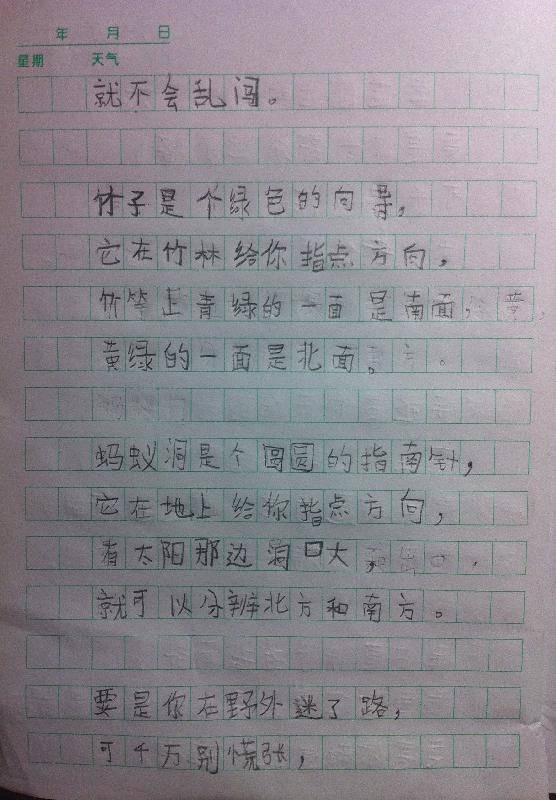 年 月 日
星期 天气
就不会乱闯。
竹子是个绿色的向导，
它在竹林给你指点方向，
竹竿上青绿的一面是南面，
黄绿的一面是北面。
蚂蚁洞是个圆圆的指南针，
它在地上给你指点方向，
有太阳那边洞口大，
就可以分辨北方和南方。
要是你在野外迷了路，
可千万别慌张，